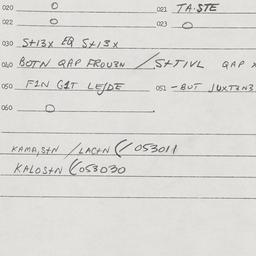 020 O 021 TA·STE
022 O 023 O
030 S+13X EQ S+13X
040 BOTN QAP / S+TIVL QAP
050 FIN G1T LE/DE 051 - BUT JUXT3N3
060 O
KAMA,S+N / LAC+N (/ 053011
KALOS+N (053030